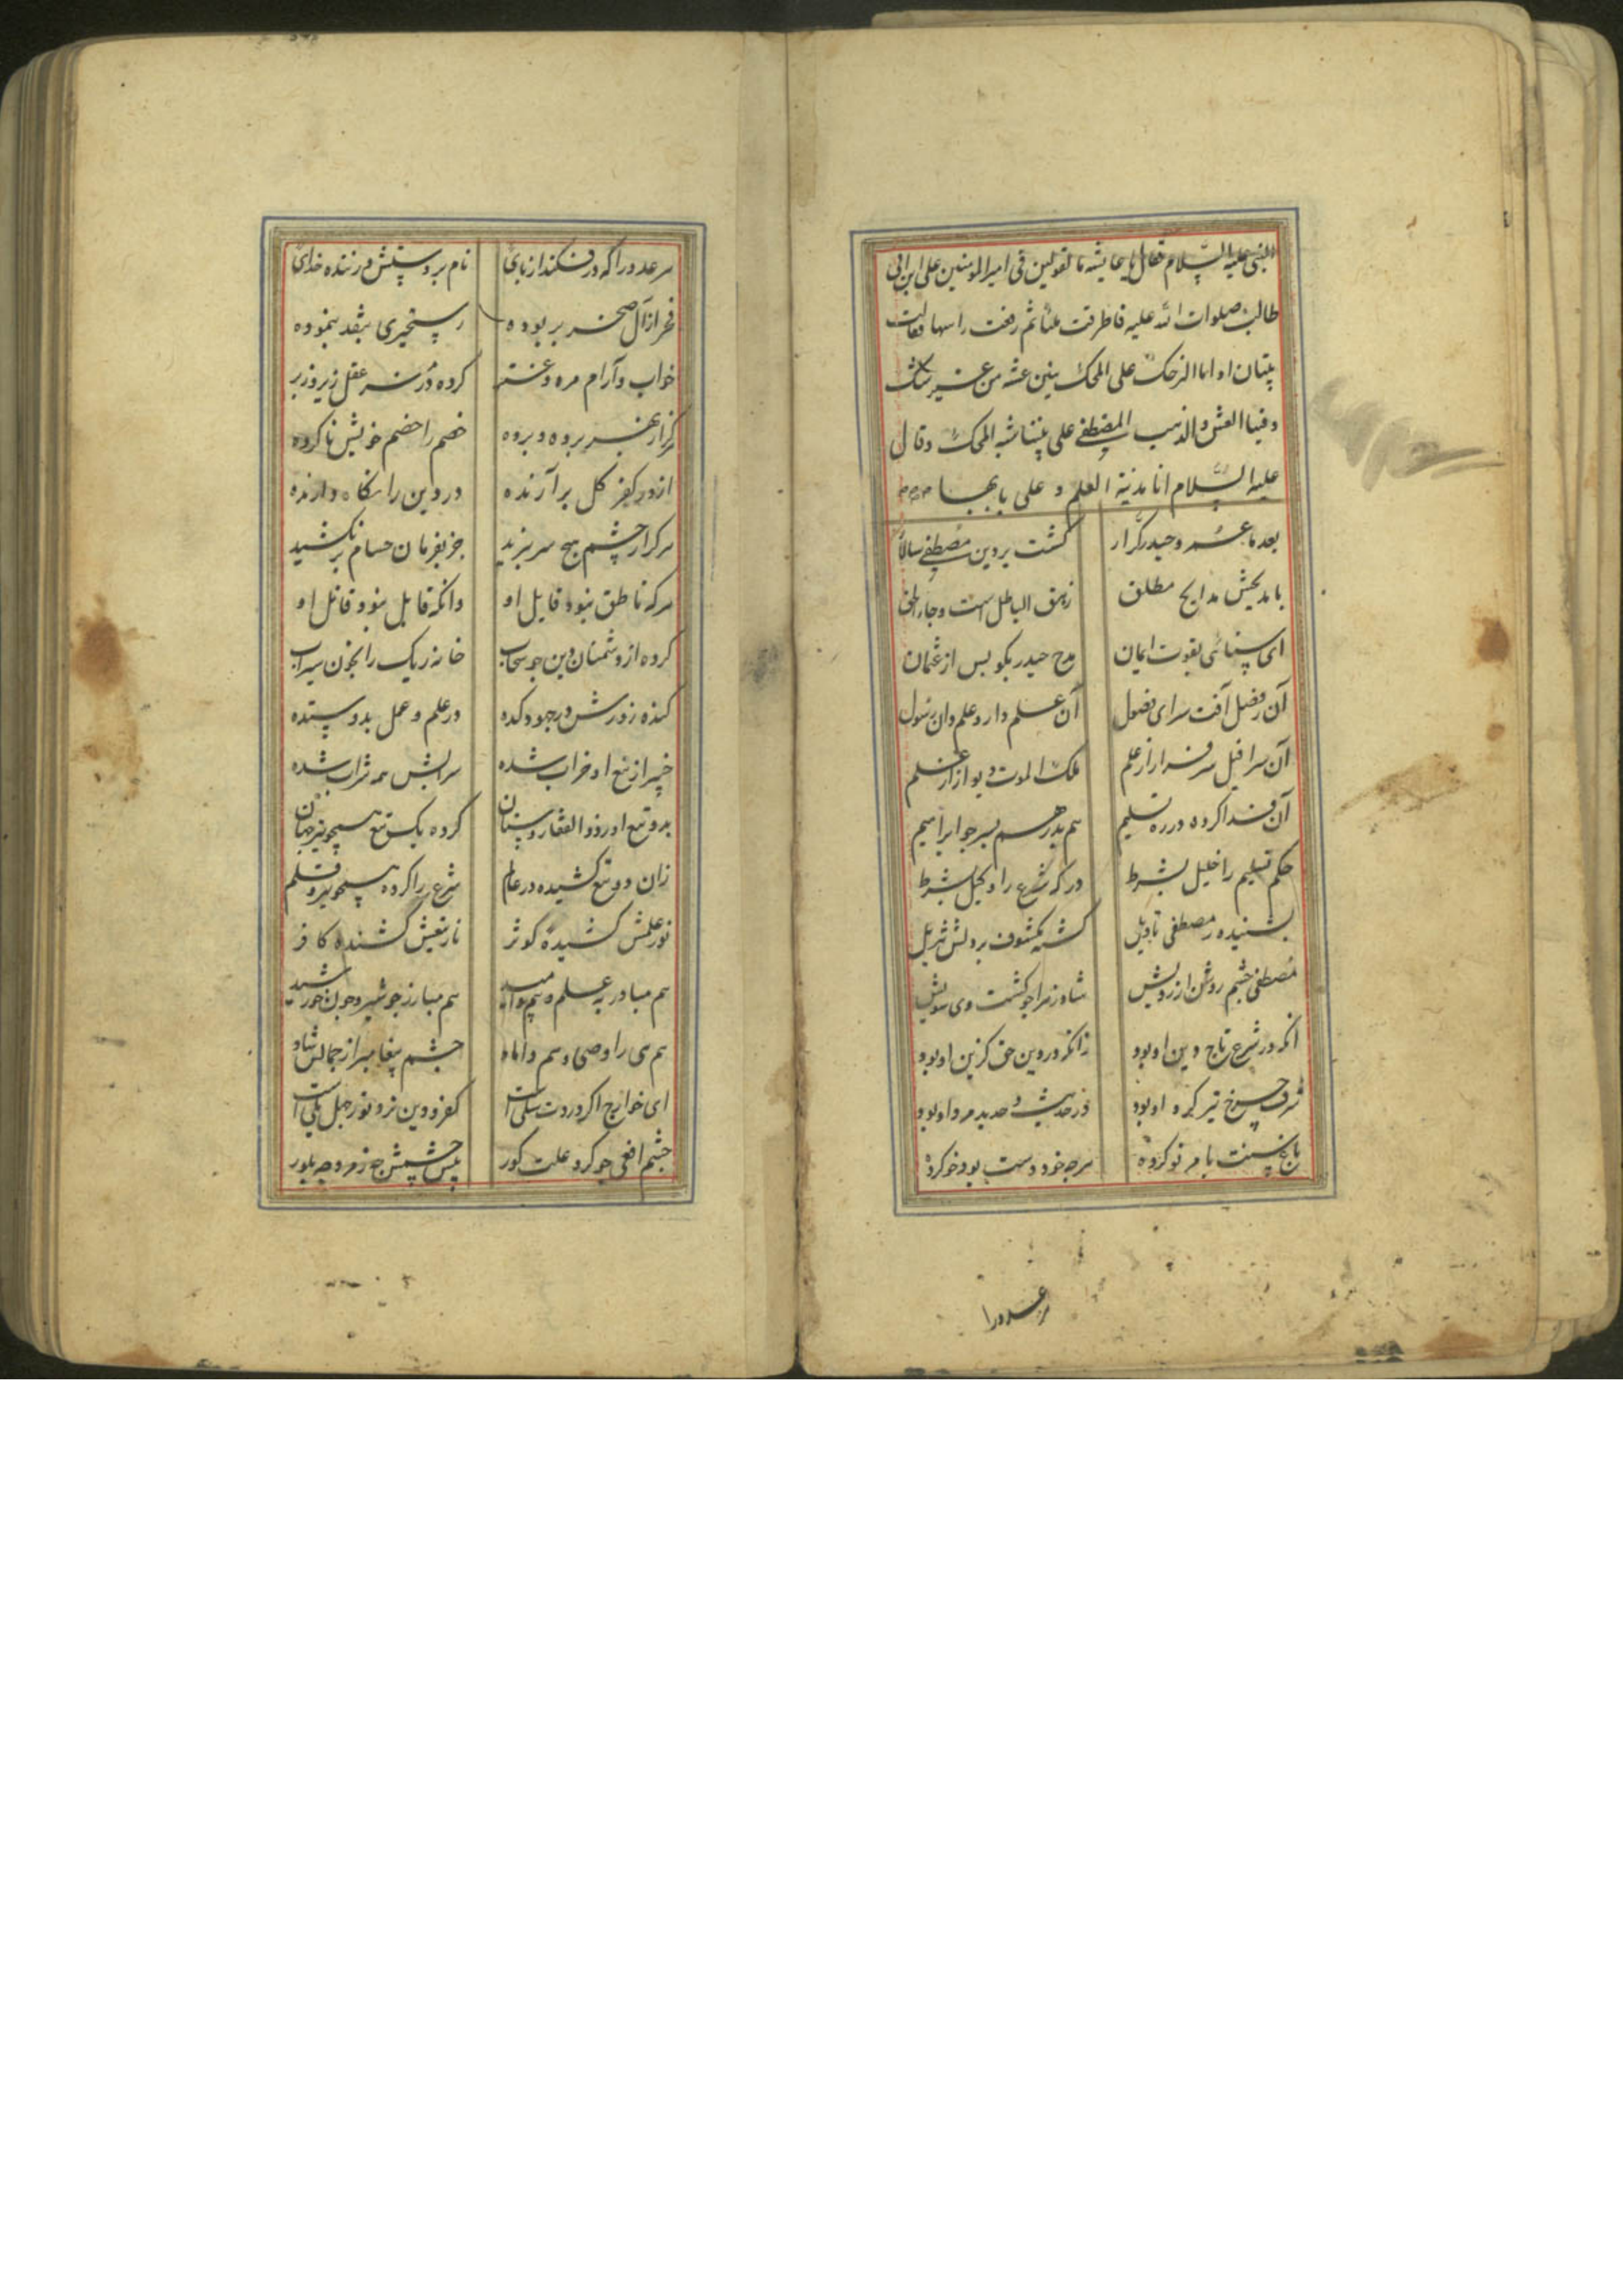 النبی علیه السلام فقال یا عایشه ما تقولین فی امیر المومنین علی ابن ابی
طالب صلوات الله علیه فاطرقت ملیا ثم رفعت راسها فقالت
بیتان اذا ما التبر حک علی المحک تبین غشه من غیر شک
و فینا الغش و الذهب المصفی علی بیننا شبه المحک و قال
علیه السلام انا مدینة العلم و علی بابها
بعد ما عمر و حیدر کرار کشت بر دین مصطفی سالار
با مدیحش مدایح مطلق زهق الباطل است و جاء الحق
ای سنائی بقوت ایمان مدح حیدر بکو پس از عثمان
آن ز فضل آفت سرای فضول آن علم دار و علم دان رسول
آن سرافیل سرفراز از علم ملک الموت دیو از از حلم
آن فدا کرده در ره تسلیم هم پدر هم پسر جو ابراهیم
حکم تسلیم را خلیل بشرط در که شرع را وکیل بشرط
بشنیده ز مصطفی تاویل کشته مکشوف بر دلش تنزیل
مصطفی چشم روشن از رویش شاد زهرا جو کشت وی شویش
انکه در شرع تاج دین او بود زانکه در دین حق کزین او بود
شرف جرخ تیز کرد او بود در حدیث و حدید مرد او بود
باغ سنت بامر نو کرده هرچه خود دست بود خو کرده
هر عدو را
هر عدو را که در فکند از پای نام بر دست زننده خدای
فخر از آل صخر بربوده رستخیزی بنقد بنموده
خواب و آرام مره و عنتر کرده در سر عقل زیر و زبر
خصم را خصم خویش ناکرده
از در کفر کل برآرنده در دین را نکاه دارنده
هرکز از خشم هیچ سر نبرید جز بفرمان حسام بر نکشید
هرکه ناطق نبود قایل او وانکه قابل نبود قاتل او
کرده از دشمنان دین جو سحاب خانه ریک را بخون سیراب
کنده زورش در جهودکده در علم و عمل بدو ستده
خیبر از تیغ او خراب شده سرابش همه شراب شده
بدو تیغ او ز ذوالفقار و سنان کرده یک تیغ همچو تیر جهان
زان دو تیغ کشیده در عالم شرع را کرده همچو تیر و قلم
نور علمش کشیده کوثر نار تیغش کشنده کافر
هم مبارز جو شیر و جون خورشید
هم نبی را وصی و هم داماد چشم پیغامبر از جمالش شاد
ای خوارج اکر درونت شکی است کفر و دین نزد تو ز جهل یکی است
چشم افعی جو کرد علت کور پیش چشمش چه زمرد چه بلور